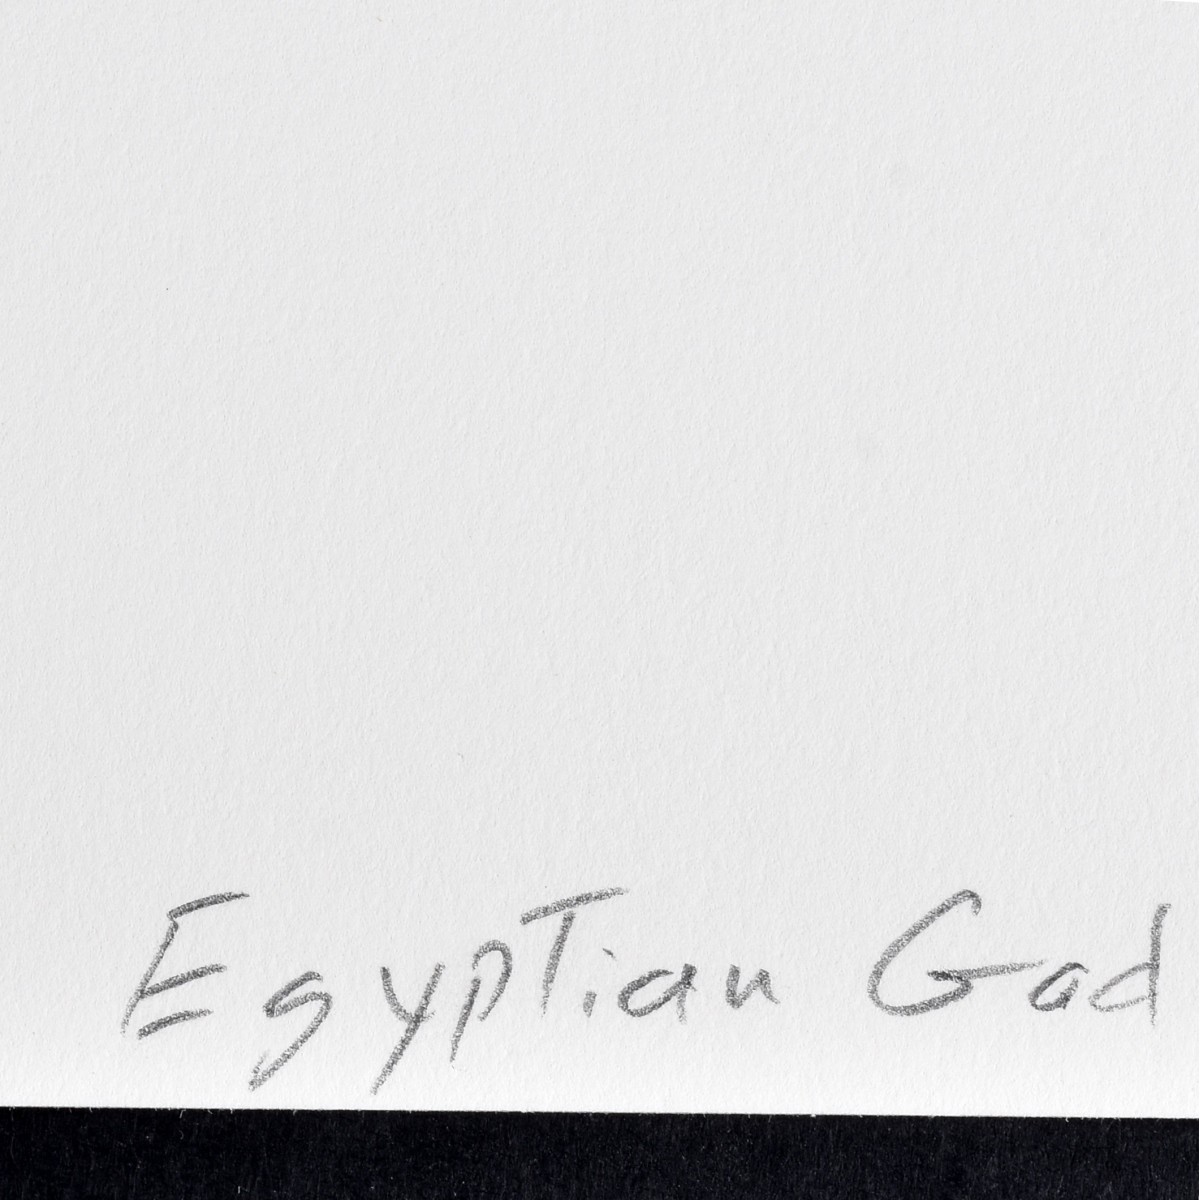 Egyptian God